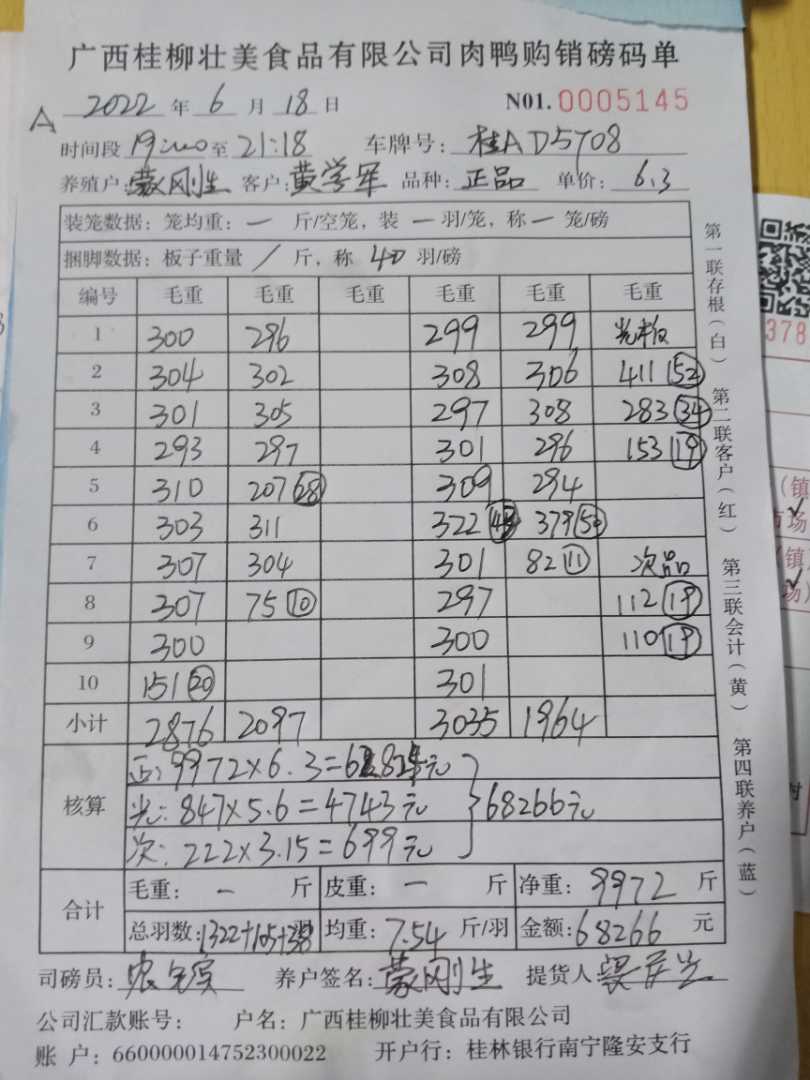 广西桂柳壮美食品有限公司肉鸭购销磅码单
A 2022 年 6 月 18 日 N01. 0005145
时间段 至 21:18 车牌号: 桂AD5708
养殖户: 蒙刚生 客户: 黄学军 品种: 正品 单价: 6.3
装笼数据: 笼均重: 一 斤/空笼, 装 一 羽/笼, 称 一 笼/磅
捆脚数据: 板子重量 / 斤, 称 40 羽/磅
编号 毛重 毛重 毛重 毛重 毛重 毛重
1 300 296 299 299
2 304 302 308 306 411 52
3 301 305 297 308 283 34
4 293 297 301 296 153 19
5 310 207 28 309 294
6 303 311 322 43 379 50
7 307 304 301 82 11 次品
8 307 75 10 297 112 19
9 300 300 110 19
10 151 20 301
小计 2876 2097 3035 1964
核算
正: 9972×6.3= 元
光: 847×5.6=4743元 68266元
次: 222×3.15=699元
合计
毛重: 一 斤 皮重: 一 斤 净重: 9972 斤
总羽数: 1322+105+38 羽 均重: 7.54 斤/羽 金额: 68266 元
司磅员: 养户签名: 蒙刚生 提货人
公司汇款账号: 户名: 广西桂柳壮美食品有限公司
账 户: 660000014752300022 开户行: 桂林银行南宁隆安支行
第一联存根(白) 第二联客户(红) 第三联会计(黄) 第四联养户(蓝)
378
(镇
市场
(镇
场)